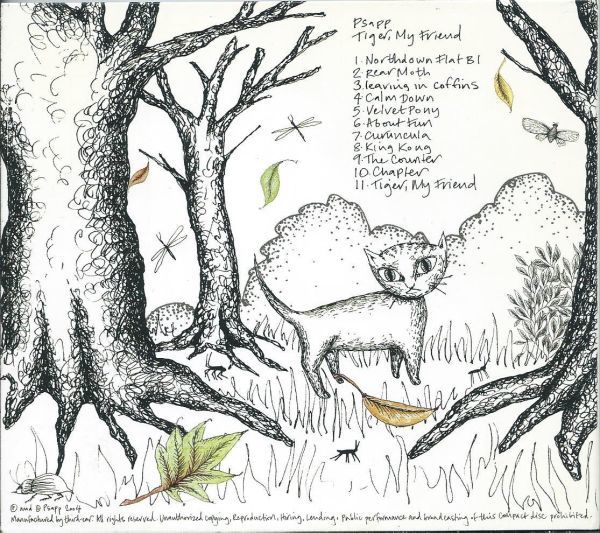 Psapp
Tiger, My Friend
1. Northdown Flat B1
2. Rear Moth
3. leaving in coffins
4. Calm Down
5. Velvet Pony
6. About Fun
7. Curuncula
8. King Kong
9. The Counter
10. Chapter
11. Tiger, My Friend
© and ℗ Psapp 2004
Manufactured by third-ear. All rights reserved. Unauthorized copying, Reproduction, Hiring, Lending, Public performance and broadcasting of this compact disc prohibited.